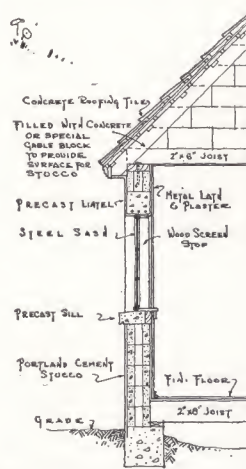 CONCRETE ROOFING TILES
FILLED WITH CONCRETE
OR SPECIAL
GABLE BLOCK
TO PROVIDE
SURFACE FOR
STUCCO
2"x6" JOIST
PRECAST LINTEL
METAL LATH
& PLASTER
STEEL SASH
WOOD SCREEN
STOP
PRECAST SILL
PORTLAND CEMENT
STUCCO
FIN. FLOOR
2"x8" JOIST
GRADE